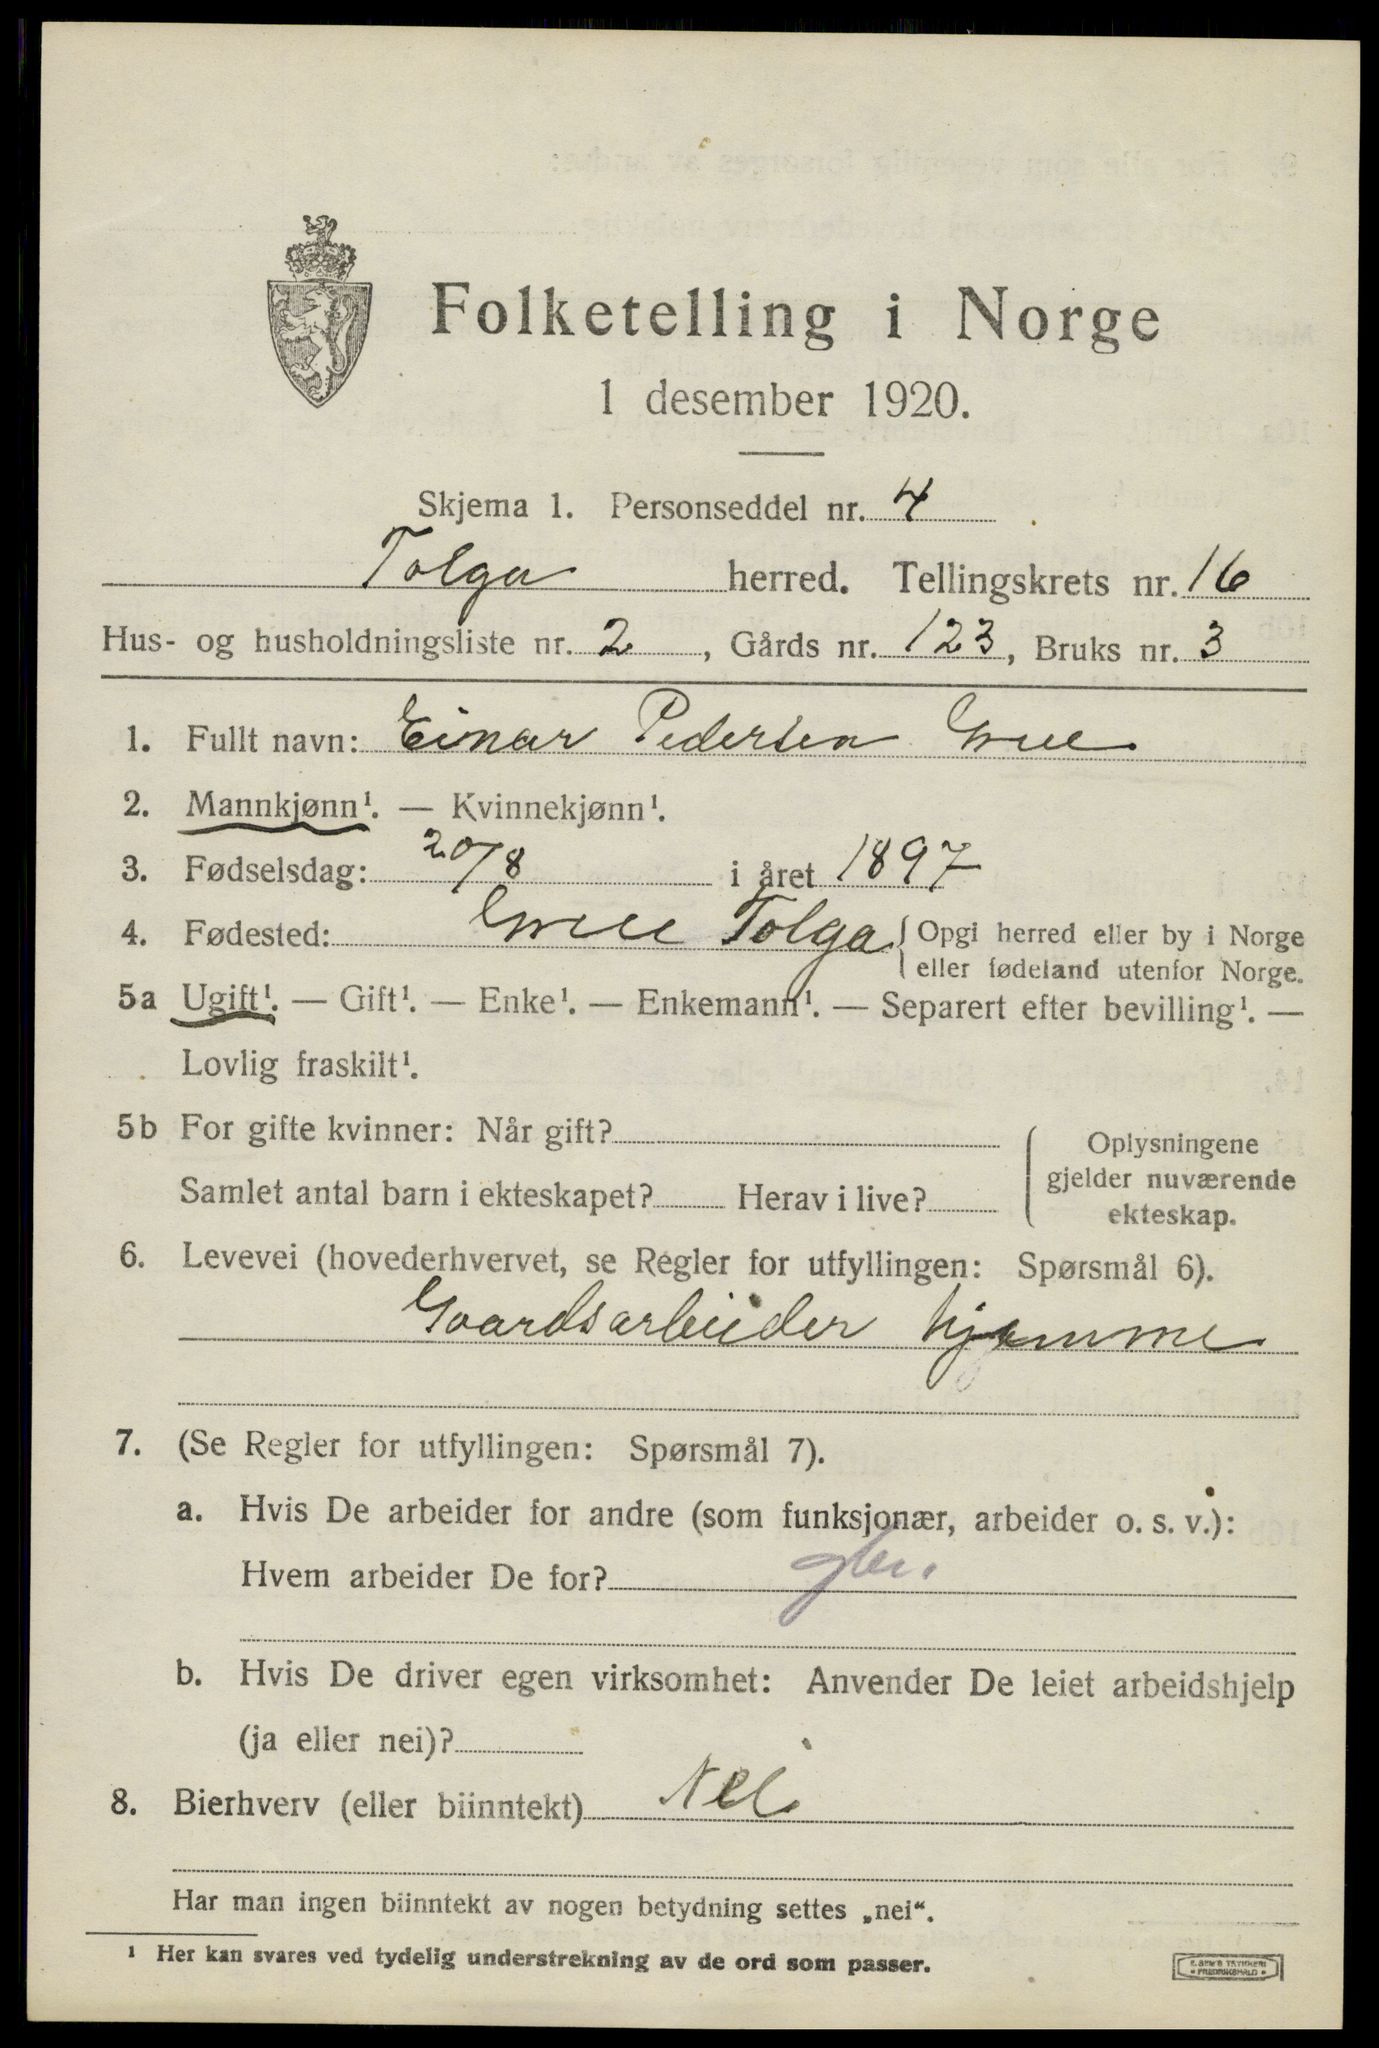 Folketelling i Norge
1 desember 1920.
Skjema 1. Personseddel nr. 4
Tolga herred. Tellingskrets nr. 16
Hus- og husholdningsliste nr. 2, Gårds nr. 123, Bruks nr. 3
1. Fullt navn: Einar Pedersen
2. Mannkjønn¹. — Kvinnekjønn¹.
3. Fødselsdag: 20/8 i året 1897
4. Fødested: Tolga { Opgi herred eller by i Norge
eller fødeland utenfor Norge.
5a Ugift¹. — Gift¹. — Enke¹. — Enkemann¹. — Separert efter bevilling¹. —
Lovlig fraskilt¹.
5b For gifte kvinner: Når gift?
Samlet antal barn i ekteskapet? Herav i live?
Oplysningene
gjelder nuværende
ekteskap.
6. Levevei (hovederhvervet, se Regler for utfyllingen: Spørsmål 6).
Gaardsarbeider hjemme
7. (Se Regler for utfyllingen: Spørsmål 7).
a. Hvis De arbeider for andre (som funksjonær, arbeider o. s. v.):
Hvem arbeider De for?
b. Hvis De driver egen virksomhet: Anvender De leiet arbeidshjelp
(ja eller nei)?
8. Bierhverv (eller biinntekt) Nei
Har man ingen biinntekt av nogen betydning settes „nei“.
¹ Her kan svares ved tydelig understrekning av de ord som passer.